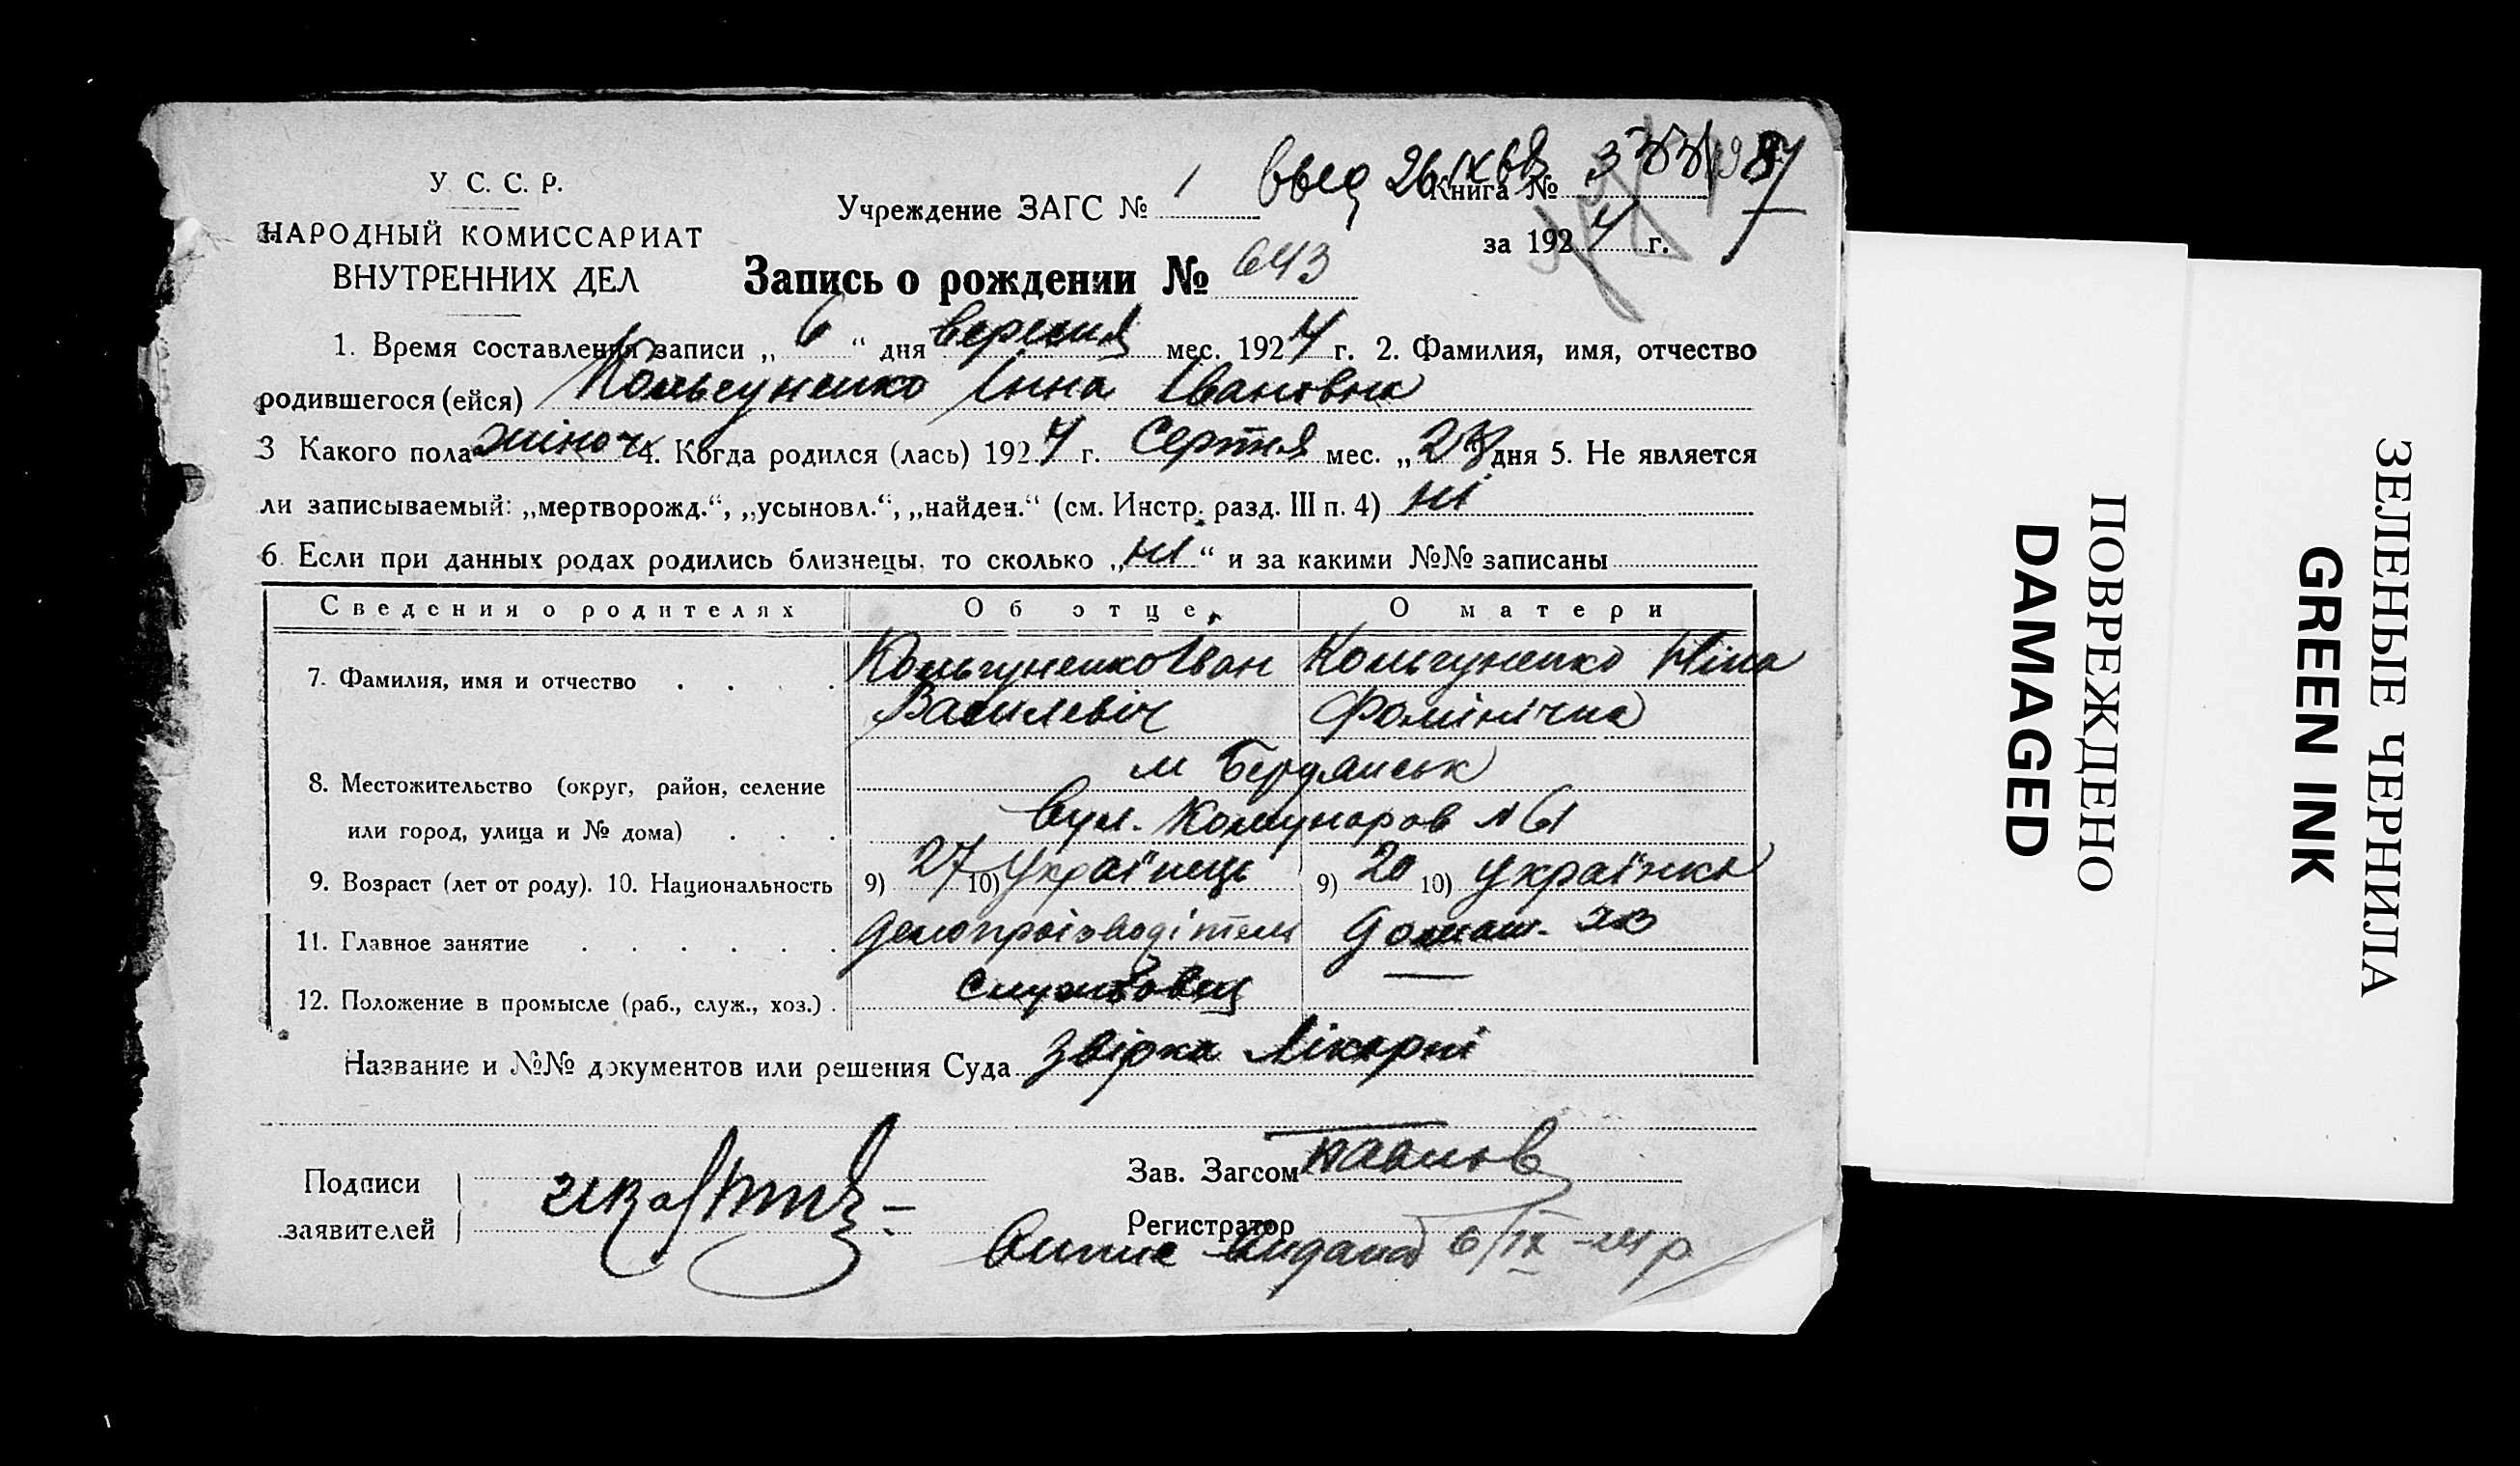 У. С. С. Р.
НАРОДНЫЙ КОМИССАРИАТ
ВНУТРЕННИХ ДЕЛ
Учреждение ЗАГС № 1
Книга №
за 1924 г.
Запись о рождении № 643
1. Время составления записи „6“ дня вересня мес. 1924 г. 2. Фамилия, имя, отчество
родившегося (ейся) Кольгуненко Інна Івановна
3 Какого пола жіноч. 4. Когда родился (лась) 1924 г. Серпня мес. „23“ дня 5. Не является
ли записываемый: „мертворожд.“, „усыновл.“, „найден.“ (см. Инстр. разд. III п. 4) ні
6. Если при данных родах родились близнецы, то сколько „ні“ и за какими №№ записаны
Сведения о родителях Об отце О матери
7. Фамилия, имя и отчество Кольгуненко Іван Кольгуненко Ніна
Василевіч Фомінічна
8. Местожительство (округ, район, селение м Бердянськ
или город, улица и № дома) вул. Комунаров № 61
9. Возраст (лет от роду). 10. Национальность 9) 27 10) Українець 9) 20 10) Українка
11. Главное занятие делопроізводітель домаш. хоз
12. Положение в промысле (раб., служ., хоз.) службовец —
Название и №№ документов или решения Суда звірка лікарні
Подписи
заявителей
Зав. Загсом Павлов
Регистратор
видана 6/IX-24 р
ПОВРЕЖДЕНО
DAMAGED
ЗЕЛЕНЫЕ ЧЕРНИЛА
GREEN INK